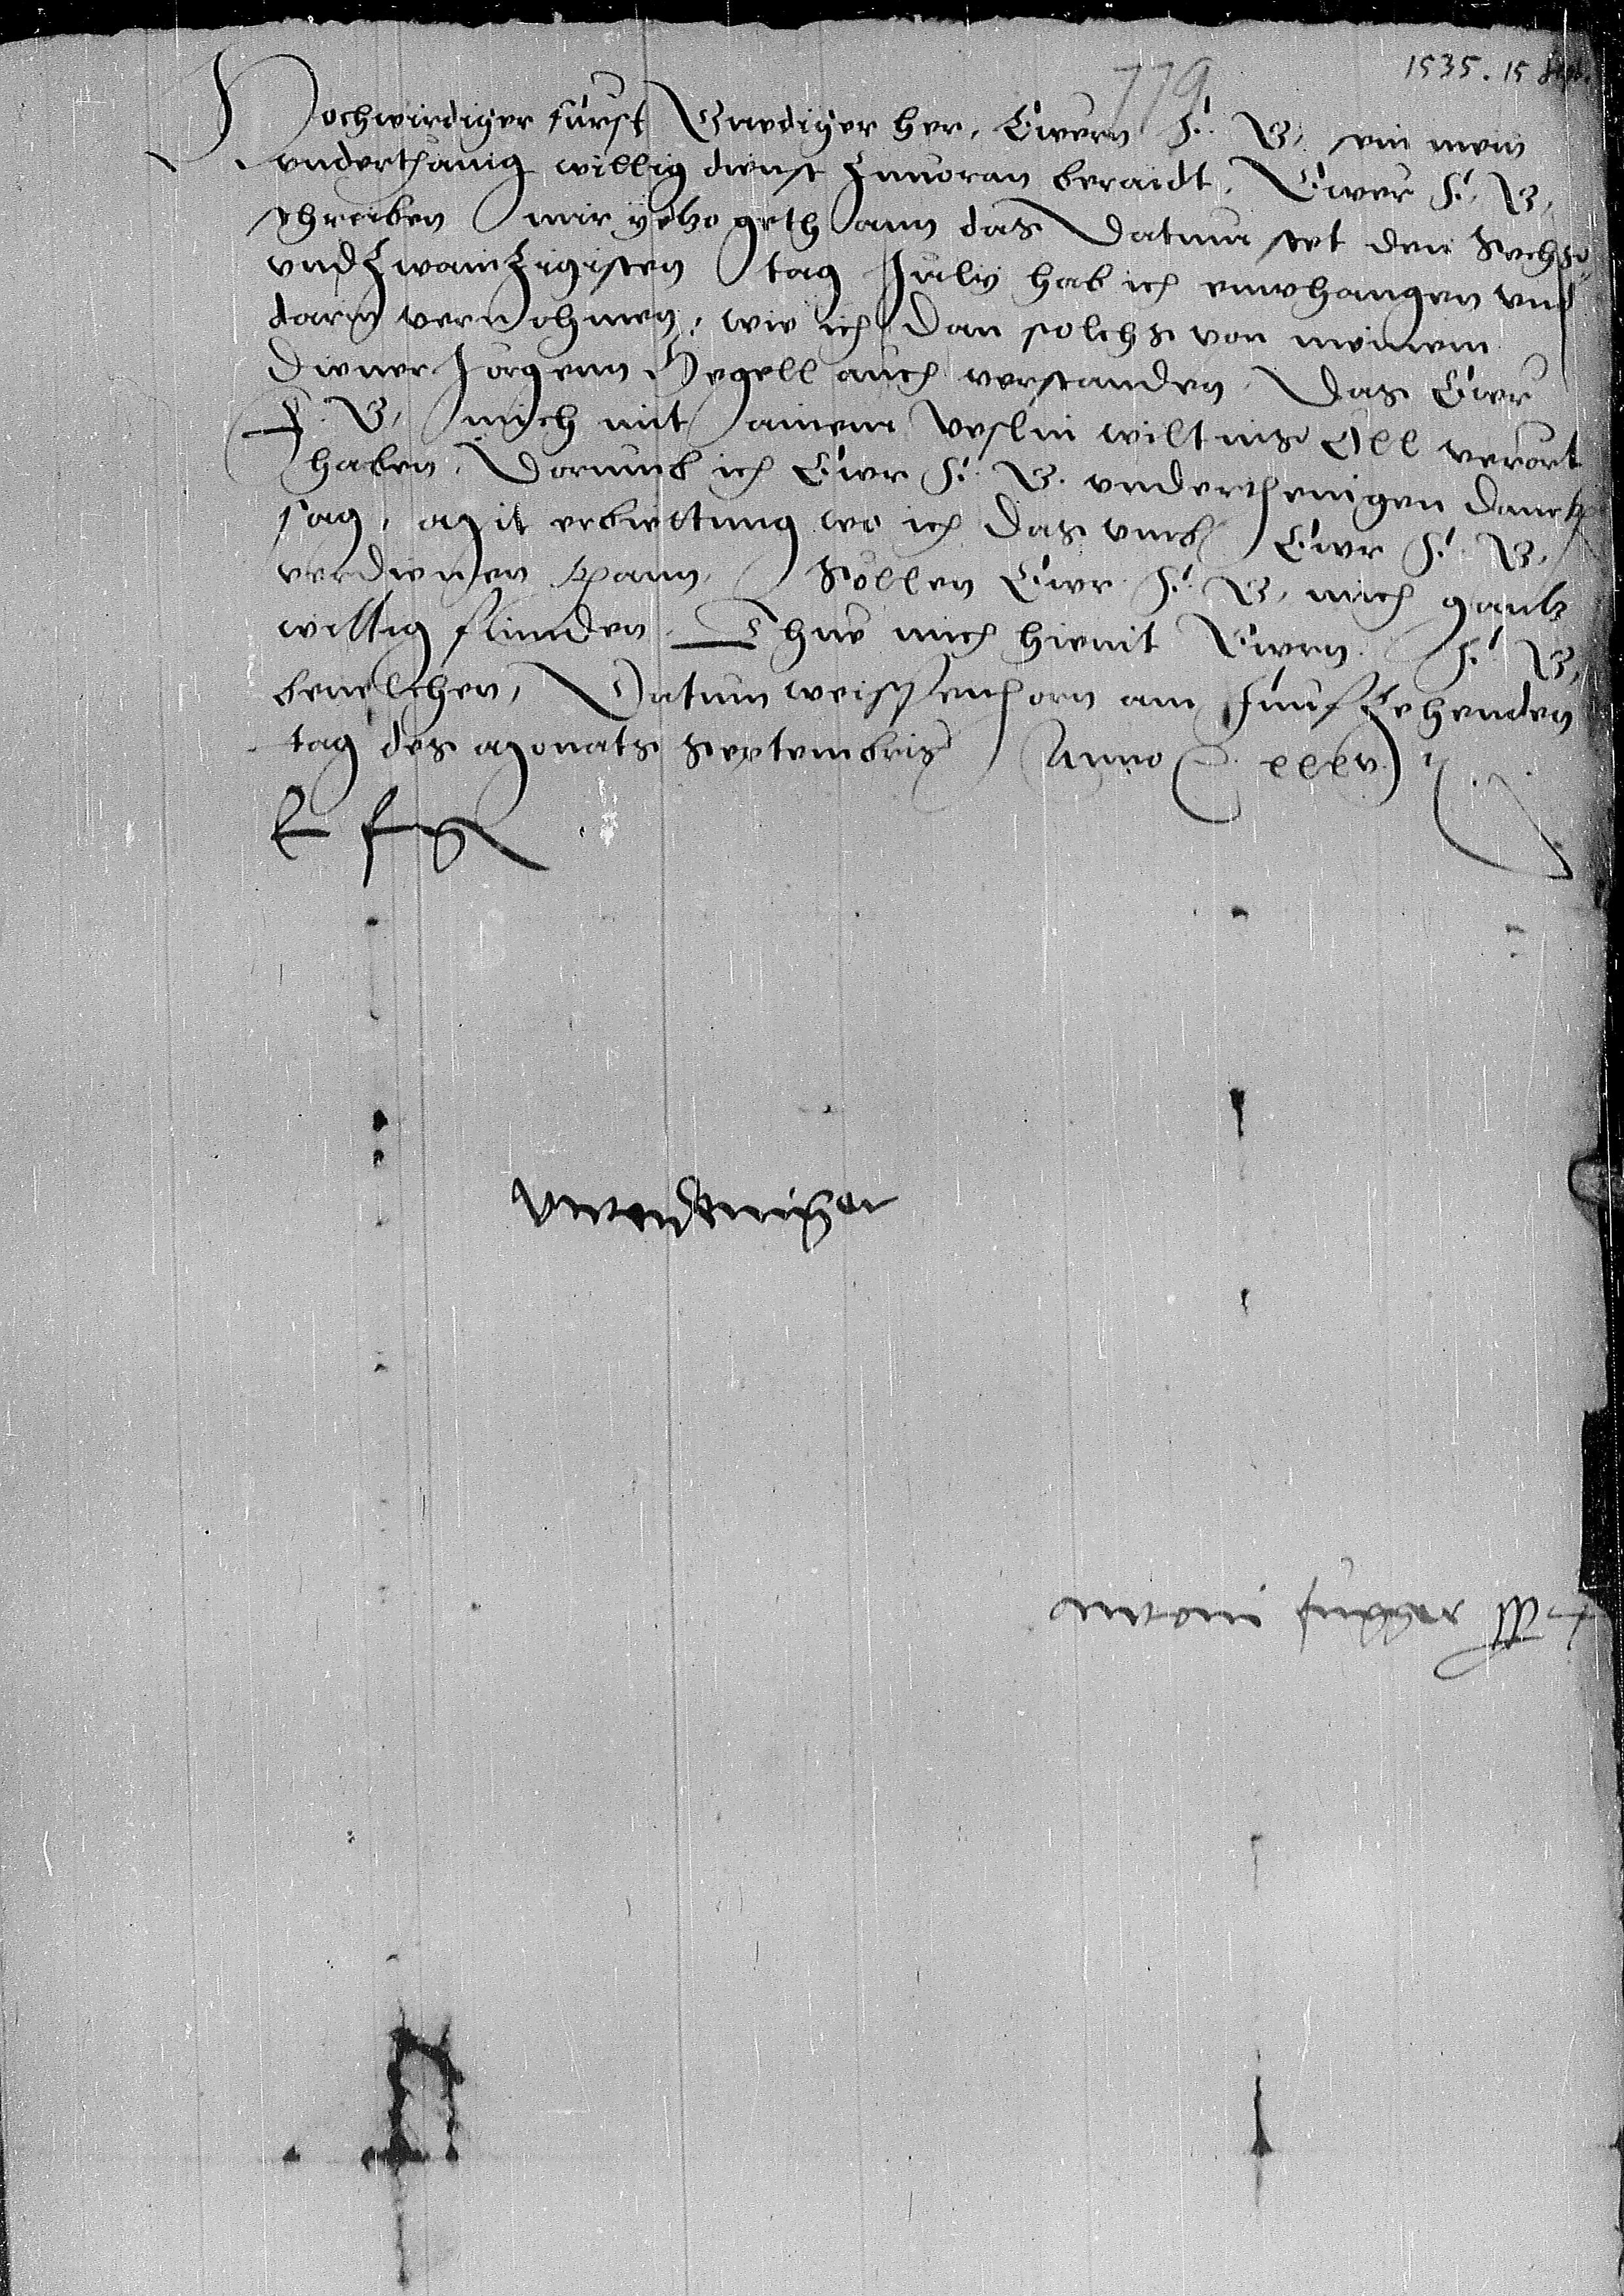 1535. 15 Sept.
779
Hochwirdiger furst Gnediger her, Ewern F. G. sein mein
underthanig willig dienst zuuoran beraidt, Ewer F. G.
schreiben mir yetzo gethann das Datum stet den Sechs=
undzwainzigisten tag Julij hab ich emphangen und
darin vernohmen, wie ich dan solchs von meinem
diener Jorgenn Hegell auch verstanden, Das Ewr
F. G. mich mit ainem veslin wiltnis Öll verort
haben, Dorumb ich Ewr F. G. underthenigen danckh
sag, Mit erbiettung wo ich das umb Ewr F. G.
verdienen khann, Söllen Ewr F. G. mich gantz
willig finnden. Thue mich hiemit Ewrn F. G.
beuelchen, Datum weissenhorn am Funfzehenden
tag des Monats Septembris Anno xxxv
E F G
underteniger